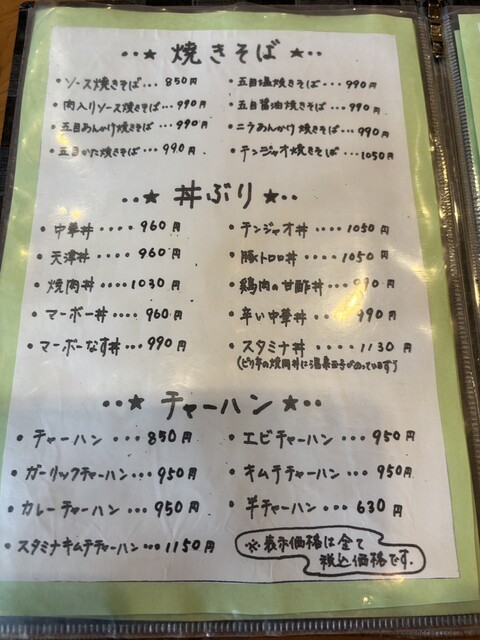 ・・★ 焼きそば ★・・
・ソース焼きそば・・・850円
・肉入りソース焼きそば・・・990円
・五目あんかけ焼きそば・・・990円
・五目かた焼きそば・・・990円
・五目塩焼きそば・・・990円
・五目醤油焼きそば・・・990円
・ニラあんかけ焼きそば・・・990円
・テンジャオ焼きそば・・・1050円
・・★ 丼ぶり ★・・
・中華丼・・・・960円
・天津丼・・・・960円
・焼肉丼・・・・1030円
・マーボー丼・・・・960円
・マーボーなす丼・・・990円
・テンジャオ丼・・・・1050円
・豚トロロ丼・・・・1050円
・鶏肉の甘酢丼・・・990円
・辛い中華丼・・・・990円
・スタミナ丼・・・・1130円
(ピリ辛の焼肉丼に温泉玉子がのっています)
・・★ チャーハン ★・・
・チャーハン・・・850円
・ガーリックチャーハン・・・950円
・カレーチャーハン・・・950円
・スタミナキムチチャーハン・・・1150円
・エビチャーハン・・・950円
・キムチチャーハン・・・950円
・半チャーハン・・・630円
※表示価格は全て
税込価格です。